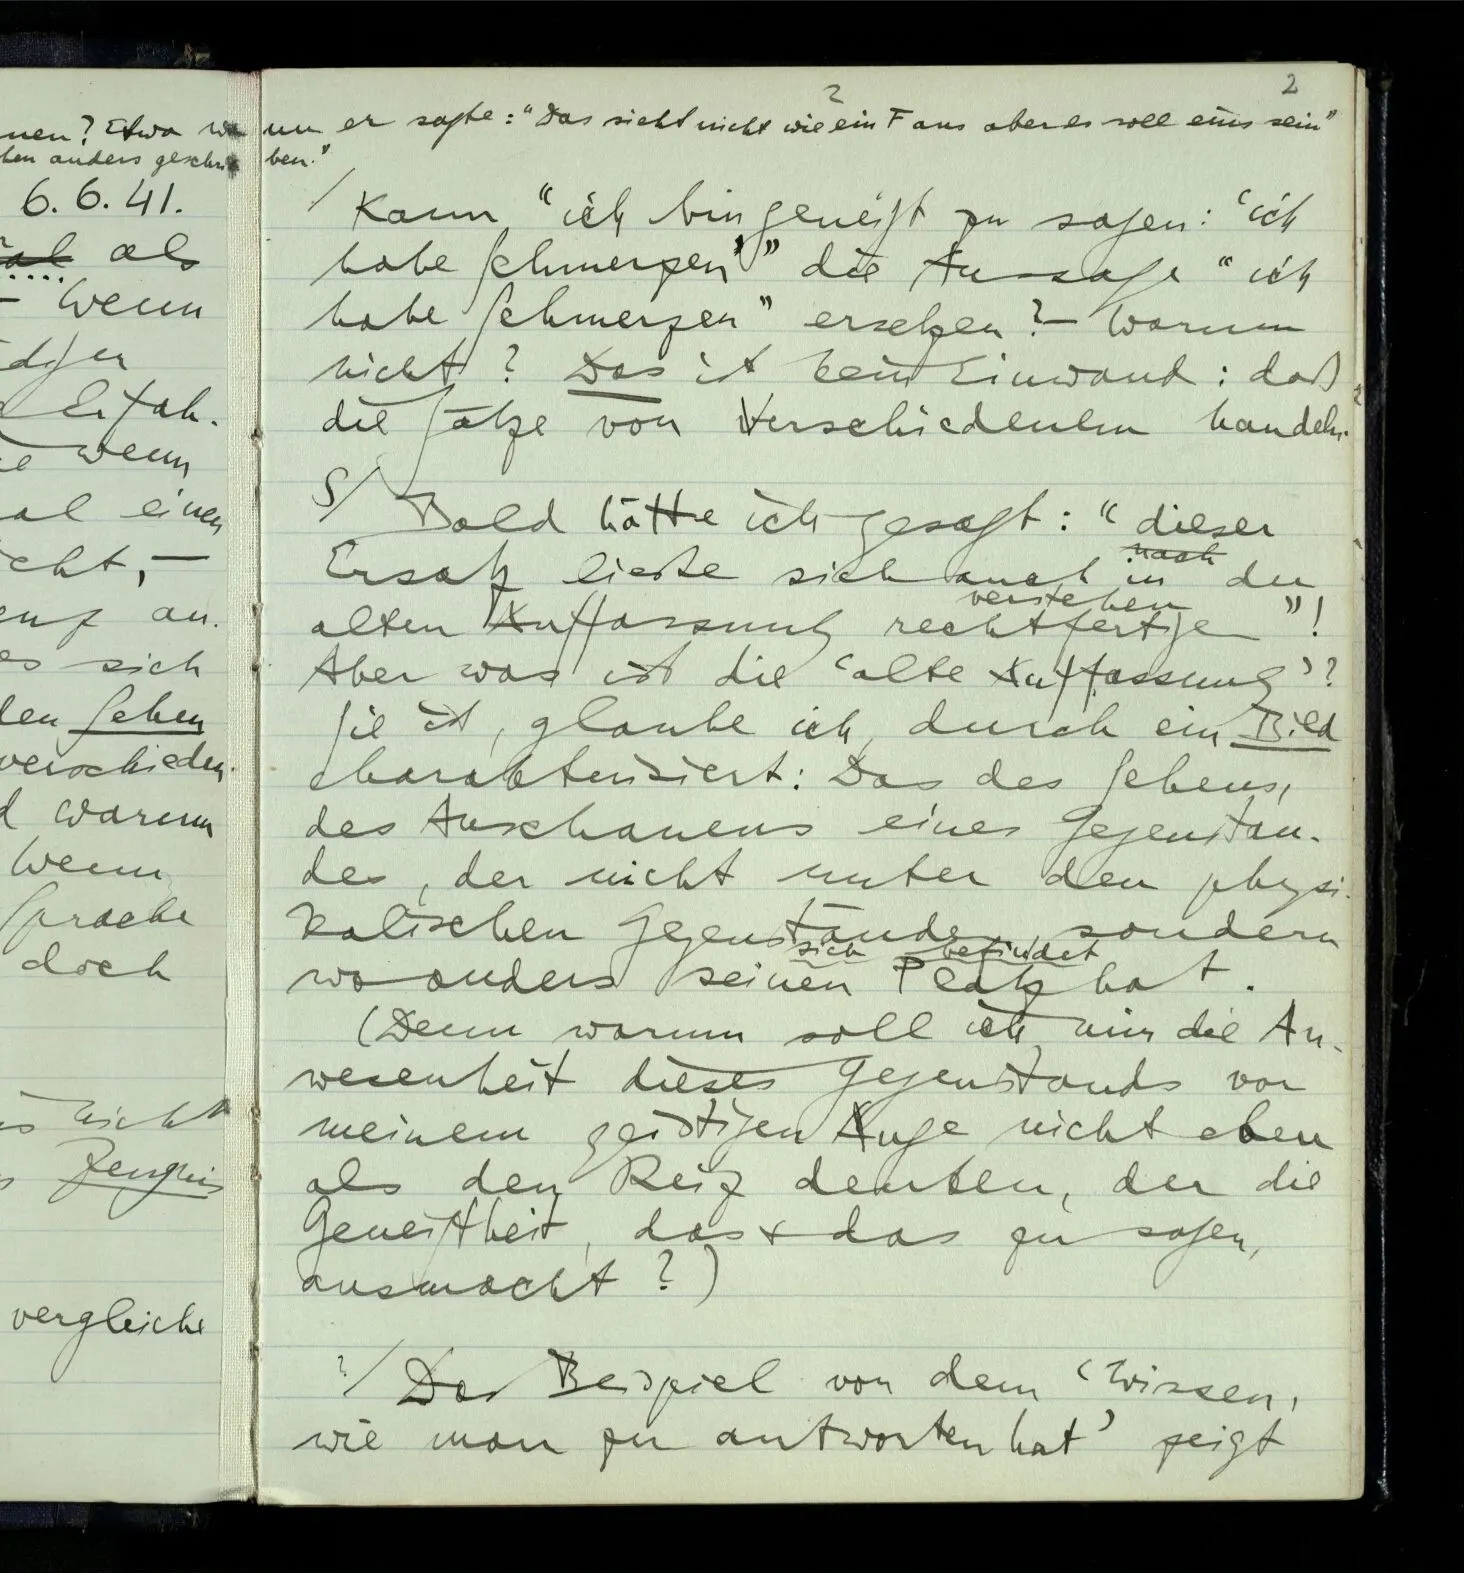 2
2
nen? Etwa wenn er sagte: "Das sieht nicht wie ein F aus aber es soll eins sein"
anders geschrieben."
6.6.41.
als
– Wenn
wenn
al einen
cht, –
an.
es sich
den Sehen
verschieden.
d warum
Wenn
Sprache
doch
nicht
Zeugnis
vergleiche
/ Kann "ich bin geneigt zu sagen: 'ich
habe Schmerzen'" die Aussage "ich
habe Schmerzen" ersetzen? – Warum
nicht? Das ist kein Einwand: daß
die Sätze von Verschiedenem handeln.
S/ Bald hätte ich gesagt: "dieser
nach
Ersatz ließe sich auch in der
verstehen
alten Auffassung rechtfertigen"!
Aber was ist die 'alte Auffassung'?
Sie ist, glaube ich, durch ein Bild
charakterisiert: Das des Sehens,
des Anschauens eines Gegenstan-
des, der nicht unter den physi-
kalischen Gegenständen, sondern
sich befindet
wo anders seinen Platz hat.
(Denn warum soll ich mir die An-
wesenheit dieses Gegenstands vor
meinem geistigen Auge nicht eben
als den Reiz denken, der die
Geneigtheit, das & das zu sagen,
ausmacht?)
?/ Das Beispiel von dem 'Wissen,
wie man zu antworten hat' zeigt